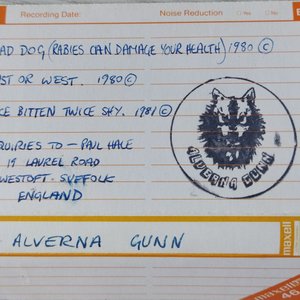 Recording Date:
Noise Reduction
AD DOG (RABIES CAN DAMAGE YOUR HEALTH) 1980 ©
ST OR WEST. 1980 ©
CE BITTEN TWICE SHY. 1981 ©
QUIRIES TO - PAUL HALE
19 LAUREL ROAD
WESTOFT. SUFFOLK
ENGLAND
ALVERNA GUNN
ALVERNA GUNN
maxell
maxell
46